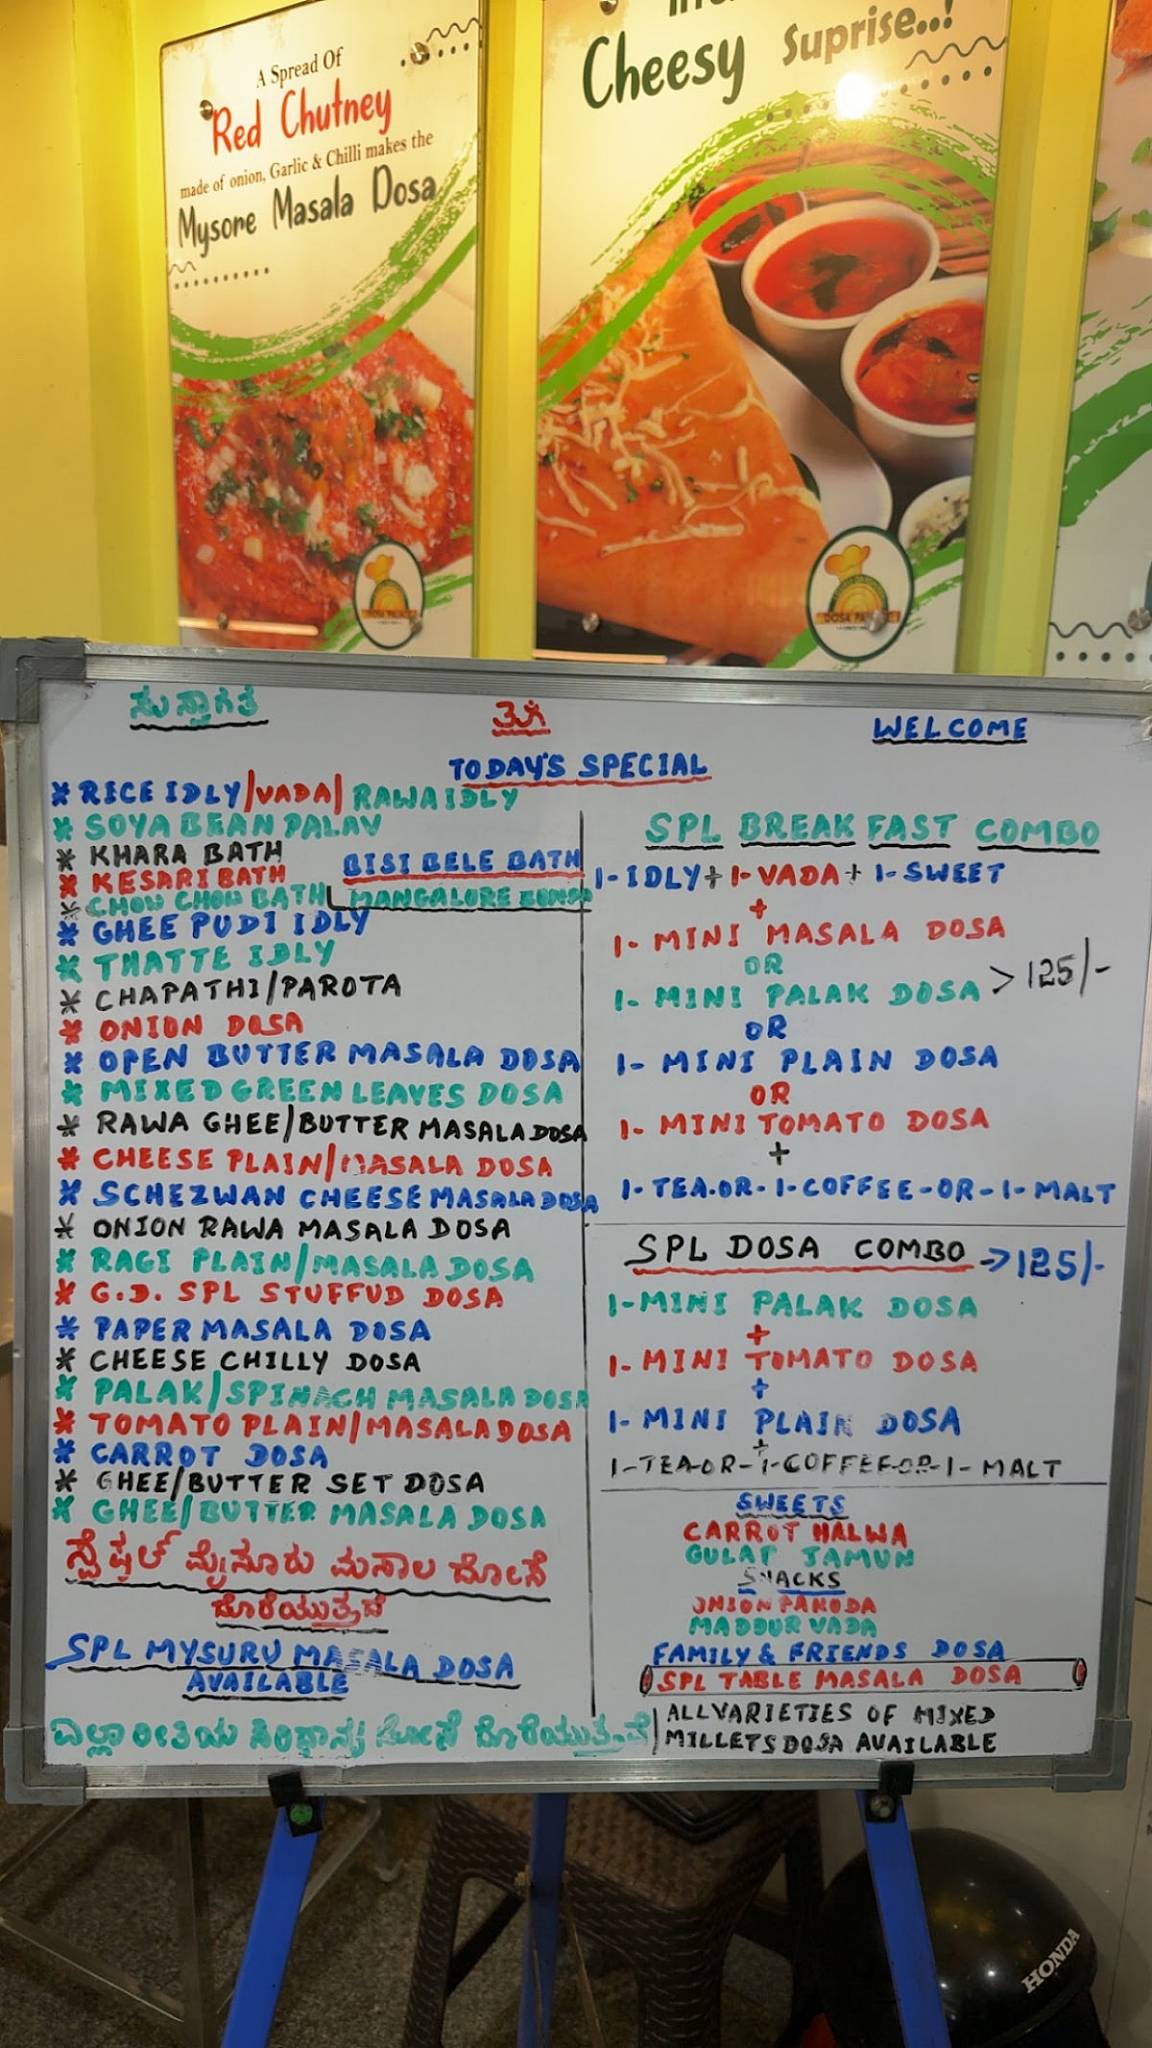 A Spread Of
Red Chutney
made of onion, Garlic & Chilli makes the
Mysore Masala Dosa
Cheesy Suprise..!
DOSA
DOSA
ಸುಸ್ವಾಗತ
WELCOME
TODAY'S SPECIAL
* RICE IDLY/VADA/ RAWA IDLY
* SOYA BEAN PALAV
* KHARA BATH
BISI BELE BATH
* KESARI BATH
* CHOW CHOW BATH
MANGALORE
* GHEE PUDI IDLY
* THATTE IDLY
* CHAPATHI/PAROTA
* ONION DOSA
* OPEN BUTTER MASALA DOSA
* MIXED GREEN LEAVES DOSA
* RAWA GHEE/BUTTER MASALA DOSA
* CHEESE PLAIN/MASALA DOSA
* SCHEZWAN CHEESE MASALA DOSA
* ONION RAWA MASALA DOSA
* RAGI PLAIN/MASALA DOSA
* G.D. SPL STUFFUD DOSA
* PAPER MASALA DOSA
* CHEESE CHILLY DOSA
* PALAK/SPINACH MASALA DOSA
* TOMATO PLAIN/MASALA DOSA
* CARROT DOSA
* GHEE/BUTTER SET DOSA
* GHEE/BUTTER MASALA DOSA
ಸ್ಪೆಷಲ್ ಮೈಸೂರು ಮಸಾಲ ದೋಸೆ
ದೊರೆಯುತ್ತದೆ
SPL MYSURU MASALA DOSA
AVAILABLE
ಎಲ್ಲಾ ರೀತಿಯ ಸಿರಿಧಾನ್ಯ ದೋಸೆ ದೊರೆಯುತ್ತದೆ
SPL BREAK FAST COMBO
1-IDLY+1-VADA+1-SWEET
+
1- MINI MASALA DOSA
OR
1- MINI PALAK DOSA > 125/-
OR
1- MINI PLAIN DOSA
OR
1- MINI TOMATO DOSA
+
1-TEA-OR-1-COFFEE-OR-1-MALT
SPL DOSA COMBO -> 125/-
1-MINI PALAK DOSA
+
1- MINI TOMATO DOSA
+
1- MINI PLAIN DOSA
+
1-TEA-OR-1-COFFEE-OR-1-MALT
SWEETS
CARROT HALWA
GULAP JAMUN
SNACKS
ONION PAKODA
MADDUR VADA
FAMILY & FRIENDS DOSA
SPL TABLE MASALA DOSA
ALL VARIETIES OF MIXED
MILLETS DOSA AVAILABLE
HONDA